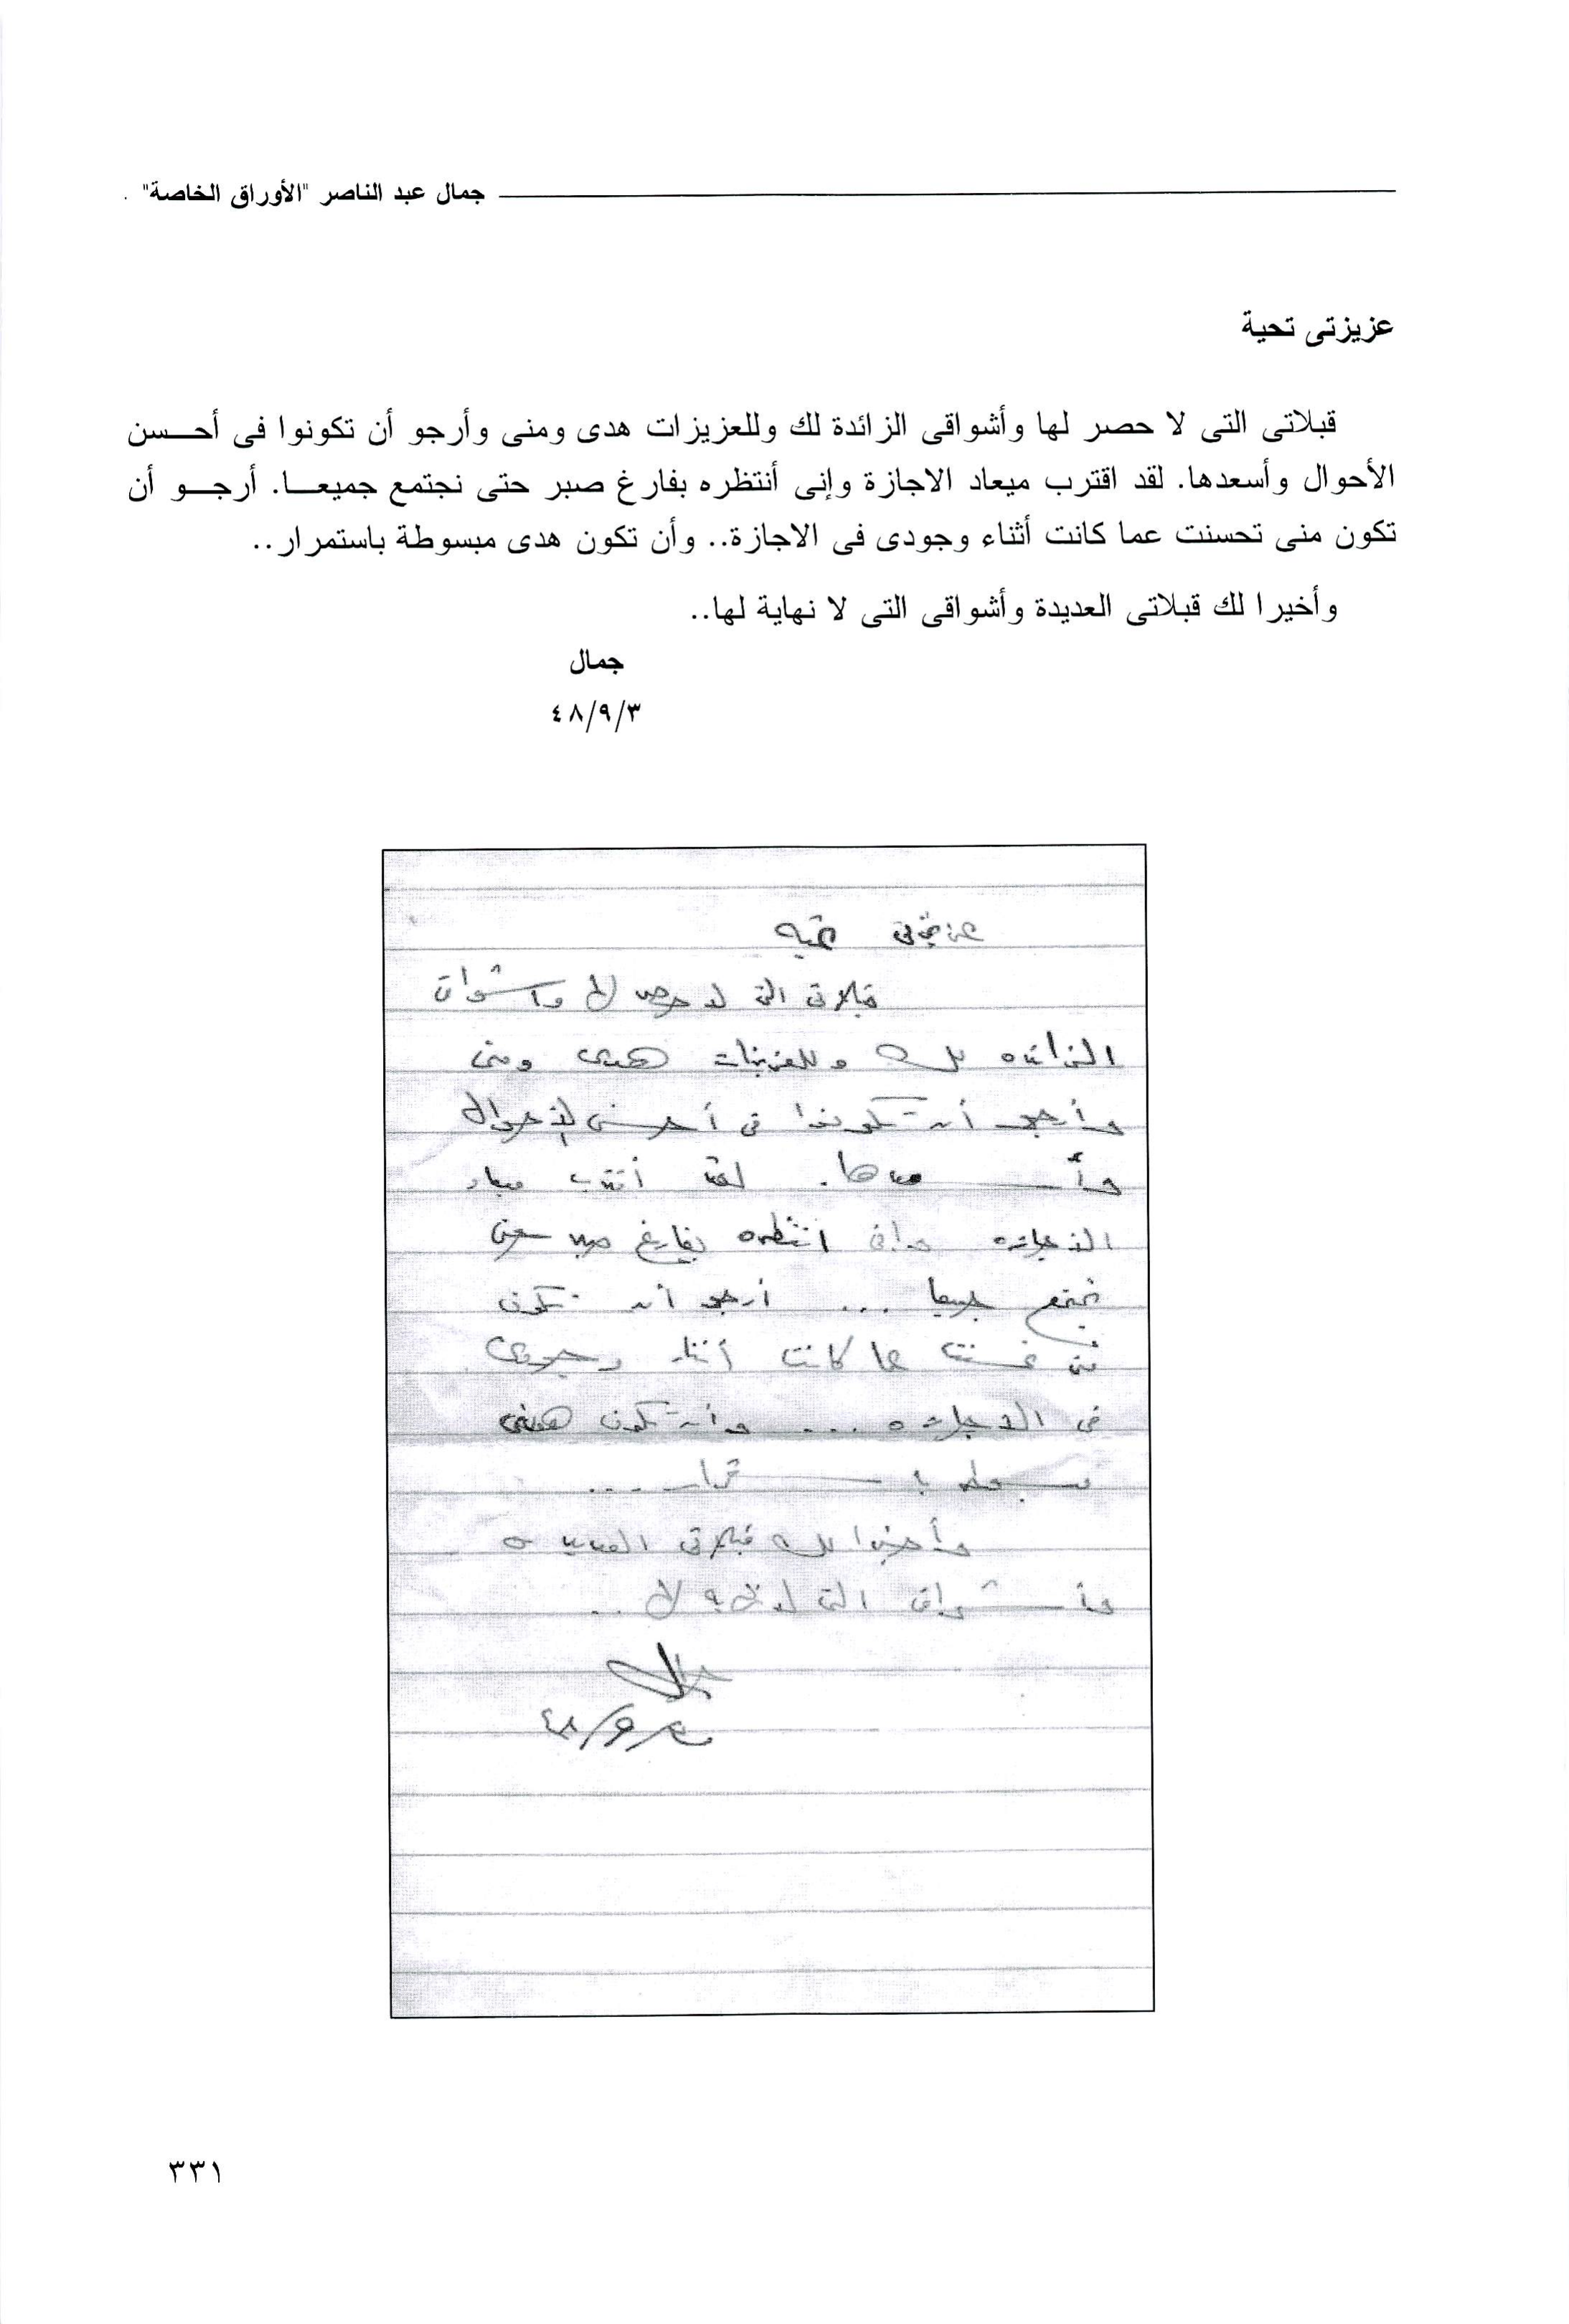 جمال عبد الناصر "الأوراق الخاصة"
عزيزتى تحية
قبلاتى التى لا حصر لها وأشواقى الزائدة لك وللعزيزات هدى ومنى وأرجو أن تكونوا فى أحسن
الأحوال وأسعدها. لقد اقترب ميعاد الاجازة وإنى أنتظره بفارغ صبر حتى نجتمع جميعا. أرجو أن
تكون منى تحسنت عما كانت أثناء وجودى فى الاجازة.. وأن تكون هدى مبسوطة باستمرار..
وأخيرا لك قبلاتى العديدة وأشواقى التى لا نهاية لها..
جمال
٤٨/٩/٣
عزيزتى تحيه
قبلاتى التى لا حصر لها وأشواقى
الزائده لك وللعزيزات هدى ومنى
وأرجو أن تكونوا فى أحسن الأحوال
وأسعدها. لقد أقترب ميعاد
الاجازه وإنى انتظره بفارغ صبر حتى
نجتمع جميعا ... أرجو أن تكون
منى تحسنت عما كانت أثناء وجودى
فى الاجازه ... وأن تكون هدى
مبسوطه باستمرار ...
وأخيرا لك قبلاتى العديده
وأشواقى التى لا نهاية لها ..
جمال
٤٨/٩/٣
٣٣١